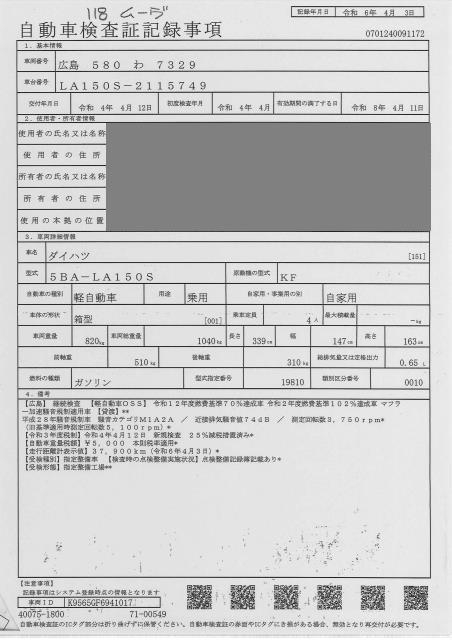 118 ムーヴ
記録年月日 令和 6年 4月 3日
自動車検査証記録事項
0701240091172
1. 基本情報
車両番号 広島 580 わ 7329
車台番号 LA150S-2115749
交付年月日 令和 4年 4月 12日 初度検査年月 令和 4年 4月 有効期間の満了する日 令和 8年 4月 11日
2. 使用者・所有者情報
使用者の氏名又は名称
使用者の住所
所有者の氏名又は名称
所有者の住所
使用の本拠の位置
3. 車両詳細情報
車名 ダイハツ [151]
型式 5BA-LA150S 原動機の型式 KF
自動車の種別 軽自動車 用途 乗用 自家用・事業用の別 自家用
車体の形状 箱型 [001] 乗車定員 4人 最大積載量 -kg
車両重量 820kg 車両総重量 1040kg 長さ 339cm 幅 147cm 高さ 163cm
前軸重 510kg 後軸重 310kg 総排気量又は定格出力 0.65 L
燃料の種類 ガソリン 型式指定番号 19810 類別区分番号 0010
4. 備考
【広島】 継続検査 【軽自動車OSS】 令和12年度燃費基準70%達成車 令和2年度燃費基準102%達成車 マフラ
ー加速騒音規制適用車 【貸渡】**
平成28年騒音規制車 騒音カテゴリM1A2A / 近接排気騒音値74dB / 測定回転数3,750rpm*
(旧基準適用時測定回転数5,100rpm)*
【令和3年度税制】令和4年4月12日 新規検査 25%減税措置済み*
【自動車重量税額】¥5,000 本則税率適用*
【走行距離計表示値】37,900km(令和6年4月3日)*
【受検種別】指定整備車 【検査時の点検整備実施状況】点検整備記録簿記載あり*
【受検形態】指定整備工場**
【注意事項】
記録事項はシステム登録時点の情報となります
車両ID K9565GF6941017
40075-1800 71-00549
自動車検査証のICタグ部分は折り曲げずに保管ください。自動車検査証の券面やICタグにき損がある場合、無効となり再交付が必要です。